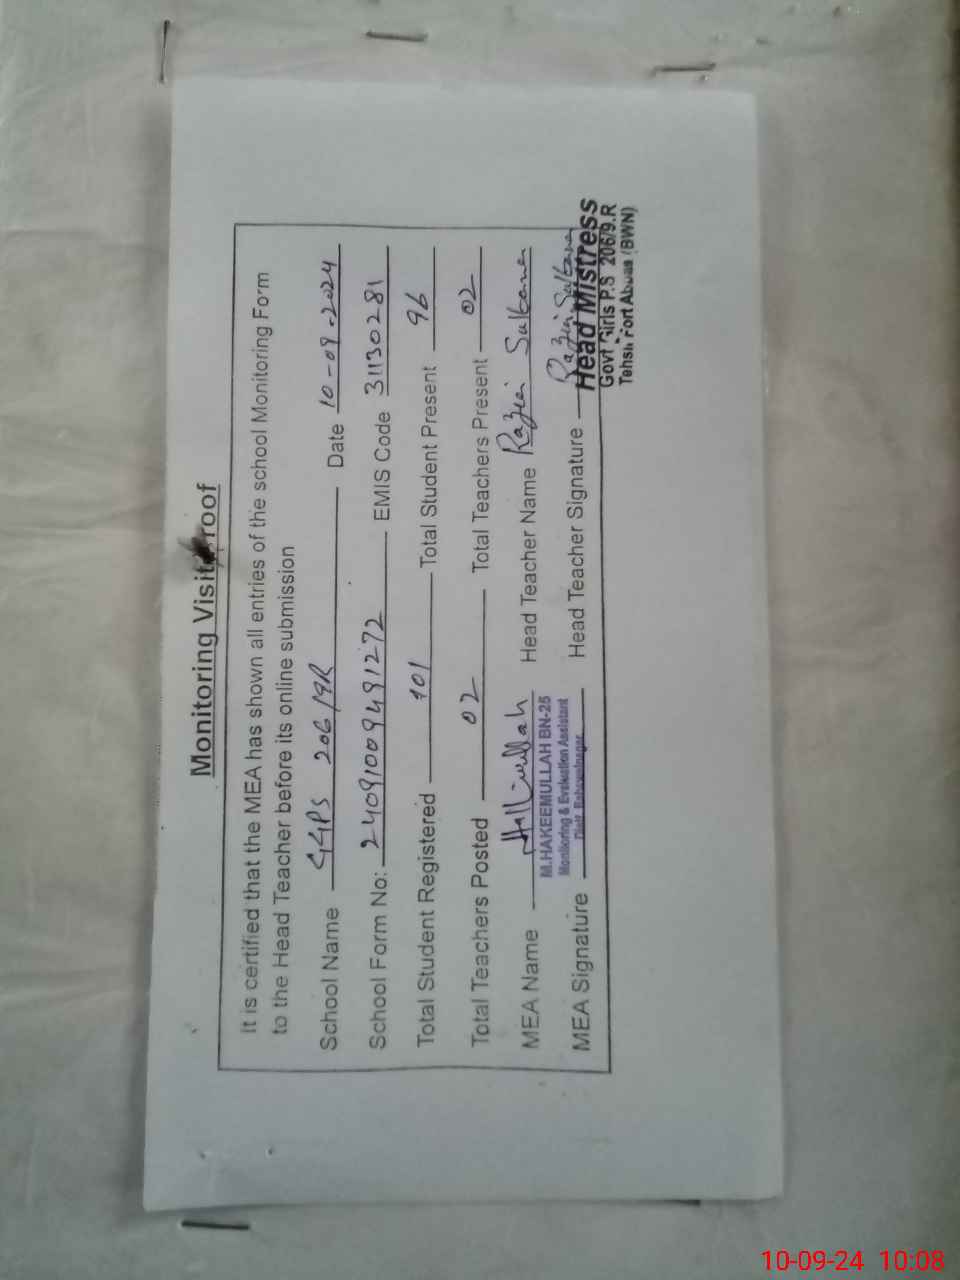 Monitoring Visit Proof
It is certified that the MEA has shown all entries of the school Monitoring Form
to the Head Teacher before its online submission
School Name GGPS 206/9R Date 10-09-2024
School Form No: 24091009491272 EMIS Code 31130281
Total Student Registered 101 Total Student Present 96
Total Teachers Posted 02 Total Teachers Present 02
MEA Name Head Teacher Name Razia Sultana
M.HAKEEMULLAH BN-25
Monitoring & Evaluation Assistant
Distt. Bahawalnagar
MEA Signature Head Teacher Signature Razia Sultana
Head Mistress
Govt Girls P.S 206/9.R
Tehsil Fort Abbas (BWN)
10-09-24 10:08